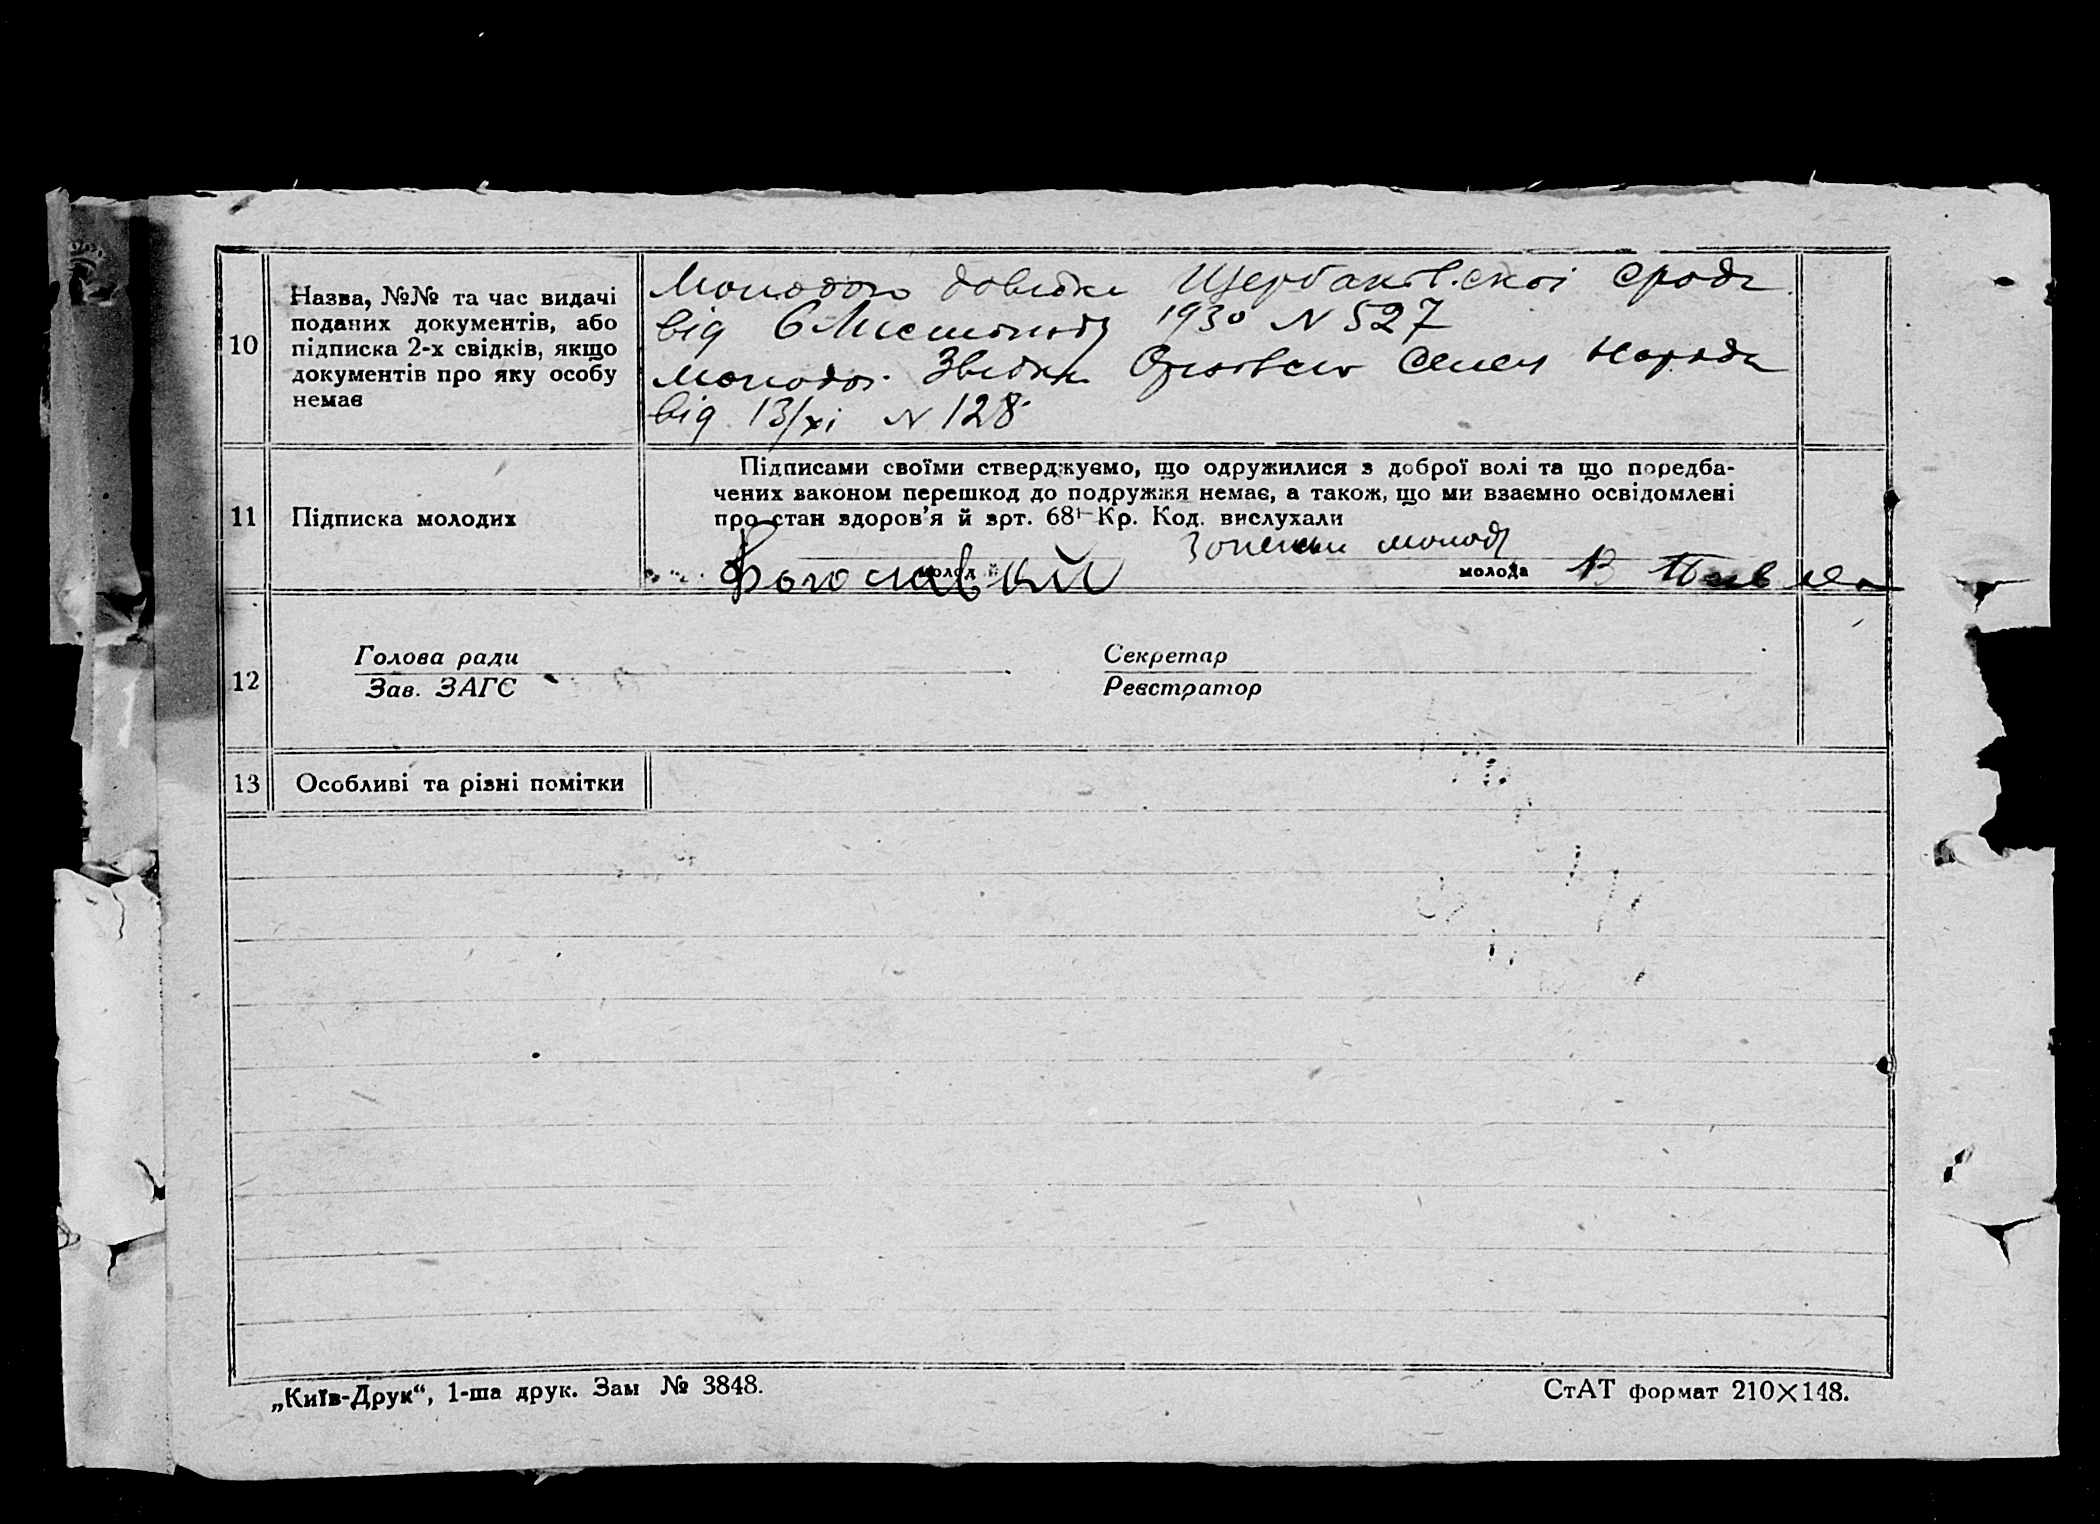 10
Назва, №№ та час видачі
поданих документів, або
підписка 2-х свідків, якщо
документів про яку особу
немає
Молодого довідка Щербаківської сради
від 6 Листопада 1930 N 527
молодої Звідка Селен Наради
від 13/XI N 128
11
Підписка молодих
Підписами своїми стверджуємо, що одружилися з доброї волі та що передба-
чених законом перешкод до подружжя немає, а також, що ми взаємно освідомлені
про стан здоров'я й арт. 68¹ Кр. Код. вислухали
молодий
Богославский
молоді
молода
12
Голова ради
Зав. ЗАГС
Секретар
Реєстратор
13
Особливі та різні помітки
„Київ-Друк“, 1-ша друк. Зам № 3848.
СтАТ формат 210×148.